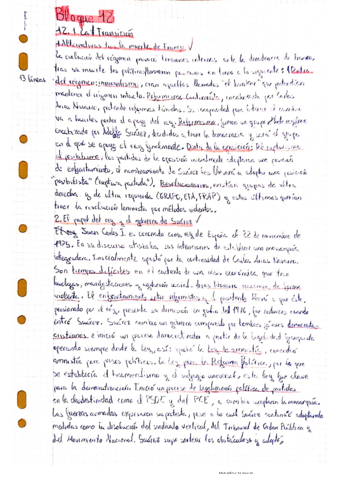 Bloque 12
12.1. La Transición
1. Alternativas tras la muerte de Franco
La evolución del régimen parecía tensiones internas ante la decadencia de Franco,
tras su muerte los posicionamientos políticos en torno a la siguiente: Élites
13 líneas
del régimen: inmovilismo, eran aquellos llamados "el búnker" que pretendían
mantener el régimen intacto. Reformismo Continuista, encabezado por Carlos
Arias Navarro, pretende reformas tímidas. Su incapacidad por liderar el cambio
va a hacerles perder el apoyo del rey. Reformismo, forman un grupo
encabezado por Adolfo Suárez, decididos a traer la democracia y será el grupo
en el que se apoye el rey finalmente. Dentro de la oposición
al postulantismo, los partidos de la oposición inicialmente adoptaron una posición
de enfrentamiento, al nombramiento de Suárez les llevará a adoptar una posición
"pactista" (ruptura pactada). Revolucionarios, existían grupos de ultra
derecha y de ultra izquierda (GRAPO, ETA, FRAP) y estos últimos querían
traer la revolución terrorista por métodos violentos.
2. El papel del rey y el gobierno de Suárez
El rey Juan Carlos I es coronado como rey de España el 22 de noviembre de
1975. En su discurso expresaba sus intenciones de establecer una monarquía
integradora. Inicialmente apostó por la continuidad de Carlos Arias Navarro.
Son tiempos difíciles en el contexto de una crisis económica, que trae
huelgas, manifestaciones y agitación social. Arias Navarro reacciona de forma
violenta. El enfrentamiento entre reformistas y el presidente llevó a que éste,
presionado por el rey, presente su dimisión en julio del 1976, que entonces cuando
entró Suárez. Suárez nombra un gobierno compuesto por hombres jóvenes demócrata
cristianos e inició un proceso democratizador a partir de la legalidad franquista
apoyado siempre desde la ley, así aprobó la Ley de amnistía, concedió
amnistía para presos políticos; la Ley para la Reforma Política, por la que
se establecía el bicameralismo y el sufragio universal, esta ley fue clave
para la democratización. Inició un proceso de legalización políticas de partidos
en la clandestinidad como el PSOE y del PCE, a cambio aceptaron la monarquía.
Las fuerzas armadas expresaron su protesta, pese a lo cual Suárez continuó adoptando
medidas como la disolución del sindicato vertical, del Tribunal de Orden Público y
del Movimiento Nacional. Suárez supo sortear los obstáculos y adoptó